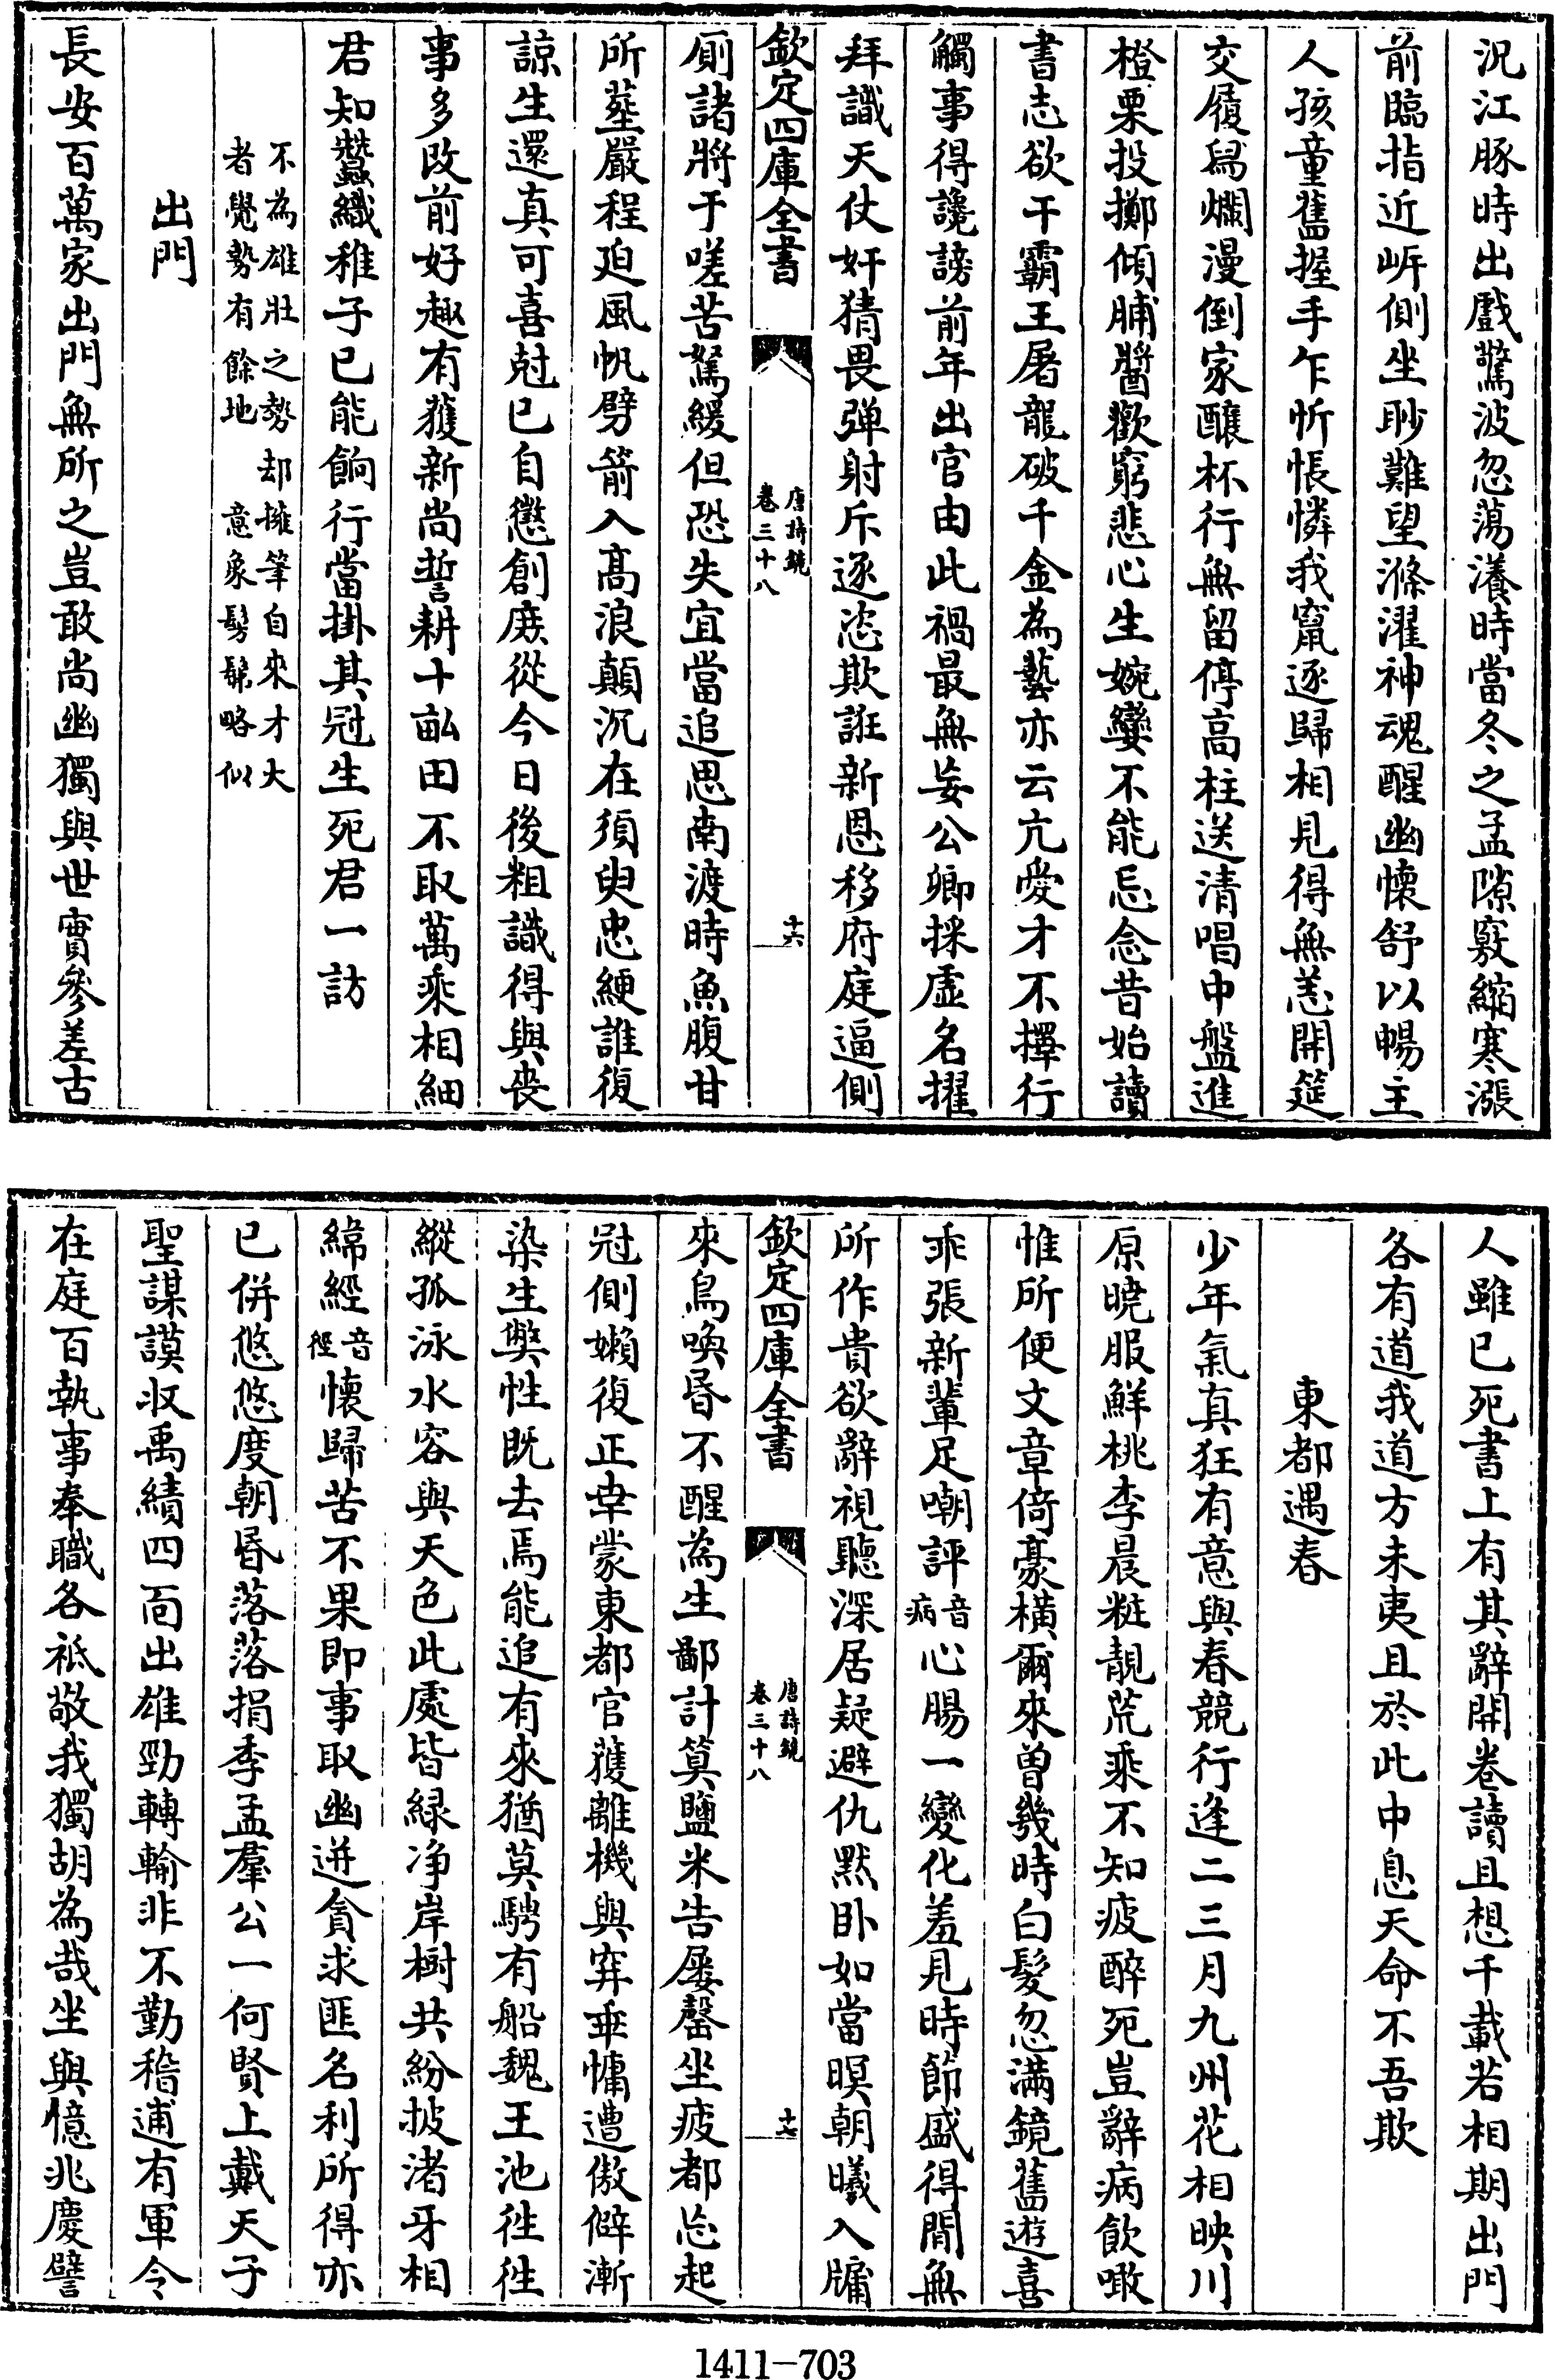 況江豚時出戲驚波忽蕩瀁時當冬之孟隙竅縮寒漲
前臨指近岍側坐眇難望滌濯神魂醒幽懷舒以暢主
人孩童舊握手乍忻悵憐我竄逐歸相見得無恙開筵
交履舄爛漫倒家釀杯行無留停高柱送清唱中盤進
橙栗投擲傾脯醬歡窮悲心生婉孌不能忘念昔始讀
書志欲干霸王屠龍破千金為藝亦云亢愛才不擇行
觸事得讒謗前年出官由此禍最無妄公卿採虛名擢
拜識天仗奸猜畏彈射斥逐恣欺誑新恩移府庭逼側
欽定四庫全書
唐詩鏡
卷三十八
十六
廁諸將于嗟苦駑緩但恐失宜當追思南渡時魚腹甘
所葬嚴程廹風帆劈箭入高浪顛沉在須臾忠鯁誰復
諒生還真可喜尅已自懲創庻從今日後粗識得與喪
事多改前好趣有獲新尚誓耕十畝田不取萬乘相細
君知蠶織稚子已能餉行當掛其冠生死君一訪
不為雄壯之勢却擁筆自來才大
者覺勢有餘地 意象髣髴略似
出門
長安百萬家出門無所之豈敢尚幽獨與世實參差古
人雖已死書上有其辭開卷讀且想千載若相期出門
各有道我道方未夷且於此中息天命不吾欺
東都遇春
少年氣真狂有意與春競行逢二三月九州花相映川
原曉服鮮桃李晨粧靚荒乘不知疲醉死豈辭病飲噉
惟所便文章倚豪橫爾來曾幾時白髮忽滿鏡舊遊喜
乖張新輩足嘲評音病心腸一變化羞見時節盛得閒無
所作貴欲辭視聽深居疑避仇默卧如當暝朝曦入牖
欽定四庫全書
唐詩鏡
卷三十八
十七
來鳥喚昏不醒為生鄙計算鹽米告屡罄坐疲都忘起
冠側嬾復正幸蒙東都官獲離機與穽乖慵遭傲僻漸
染生獘性既去焉能追有來猶莫騁有船魏王池徃徃
縱孤泳水容與天色此處皆緑净岸樹共紛披渚牙相
緯經音徑懷歸苦不果即事取幽迸貪求匪名利所得亦
已併悠悠度朝昏落落捐季孟羣公一何賢上戴天子
聖謀謨収禹績四面出雄勁轉輸非不勤稽逋有軍令
在庭百執事奉職各祗敬我獨胡為哉坐與憶兆慶譬
1411-703